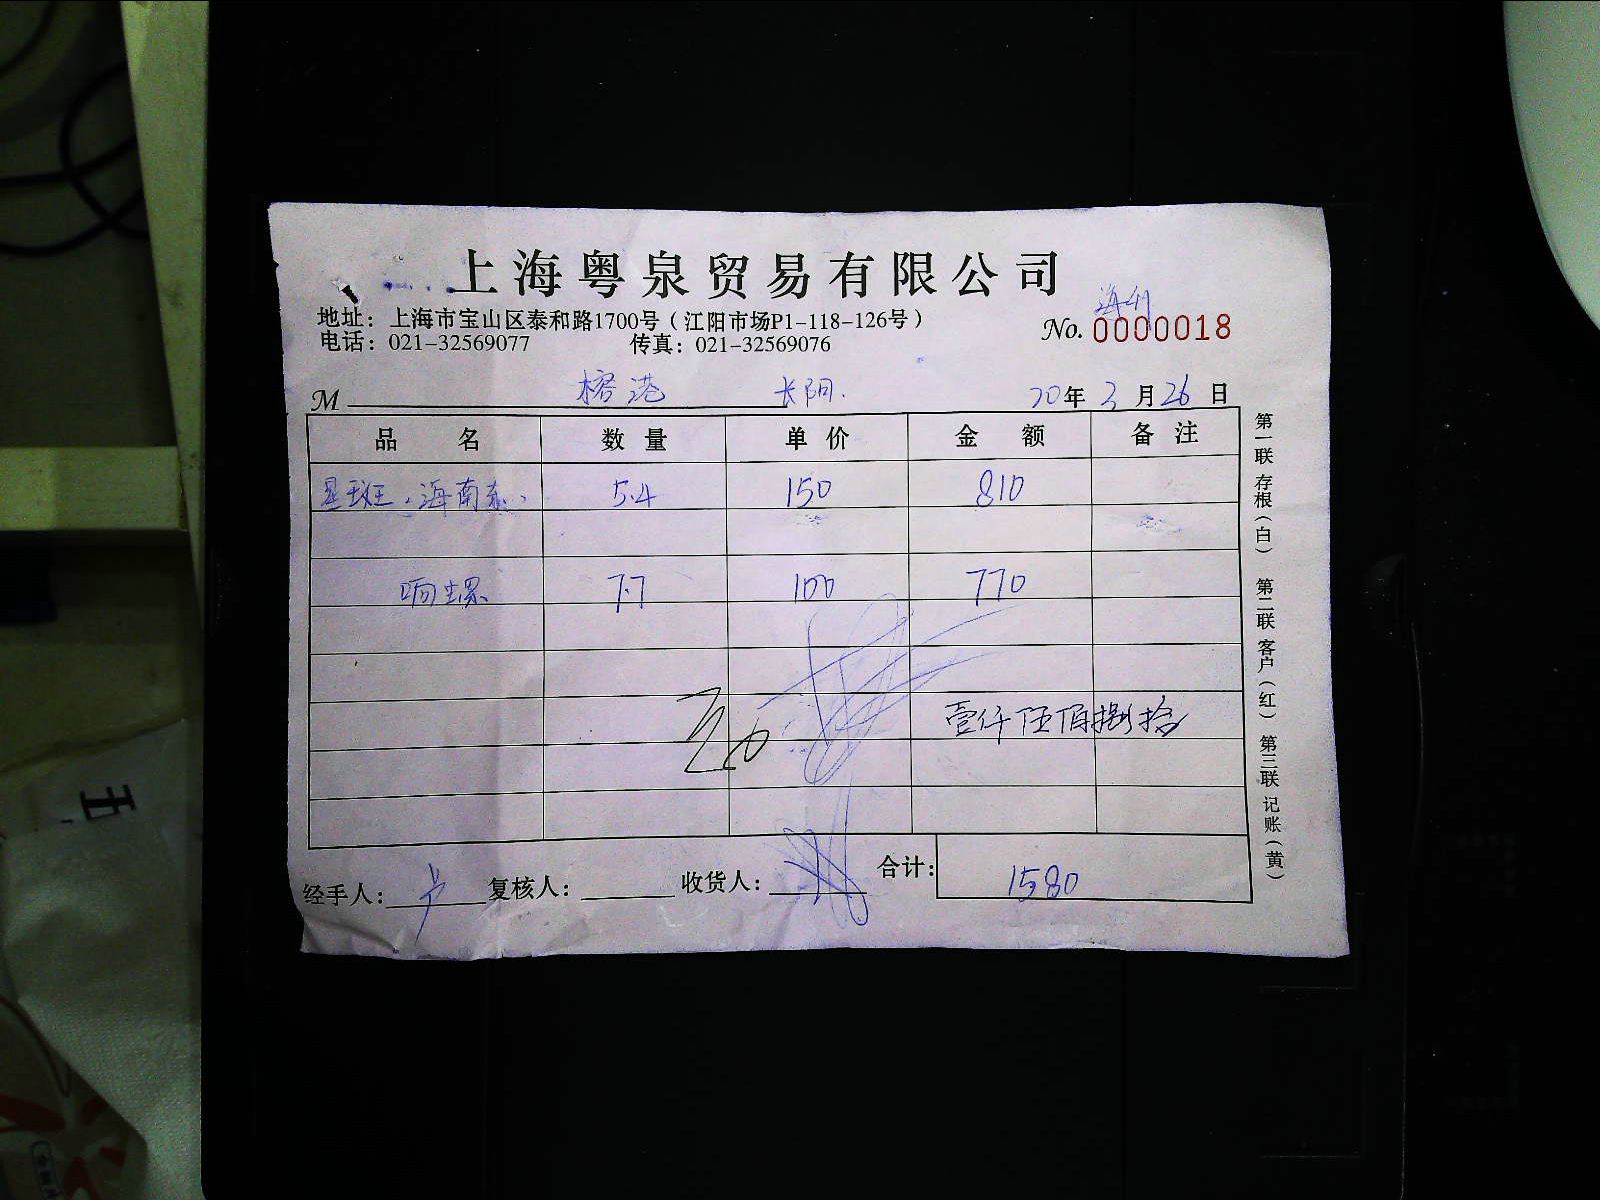 上海粤泉贸易有限公司
地址：上海市宝山区泰和路1700号（江阳市场P1-118-126号）
电话：021-32569077 传真：021-32569076
No. 0000018
M 榕港 长阳. 20年3月26日
品名 数量 单价 金额 备注
星斑.海南 5.4 150 810
响螺 7.7 100 770
壹仟伍佰捌拾
经手人： 复核人： 收货人： 合计： 1580
第一联 存根（白） 第二联 客户（红） 第三联 记账（黄）
五